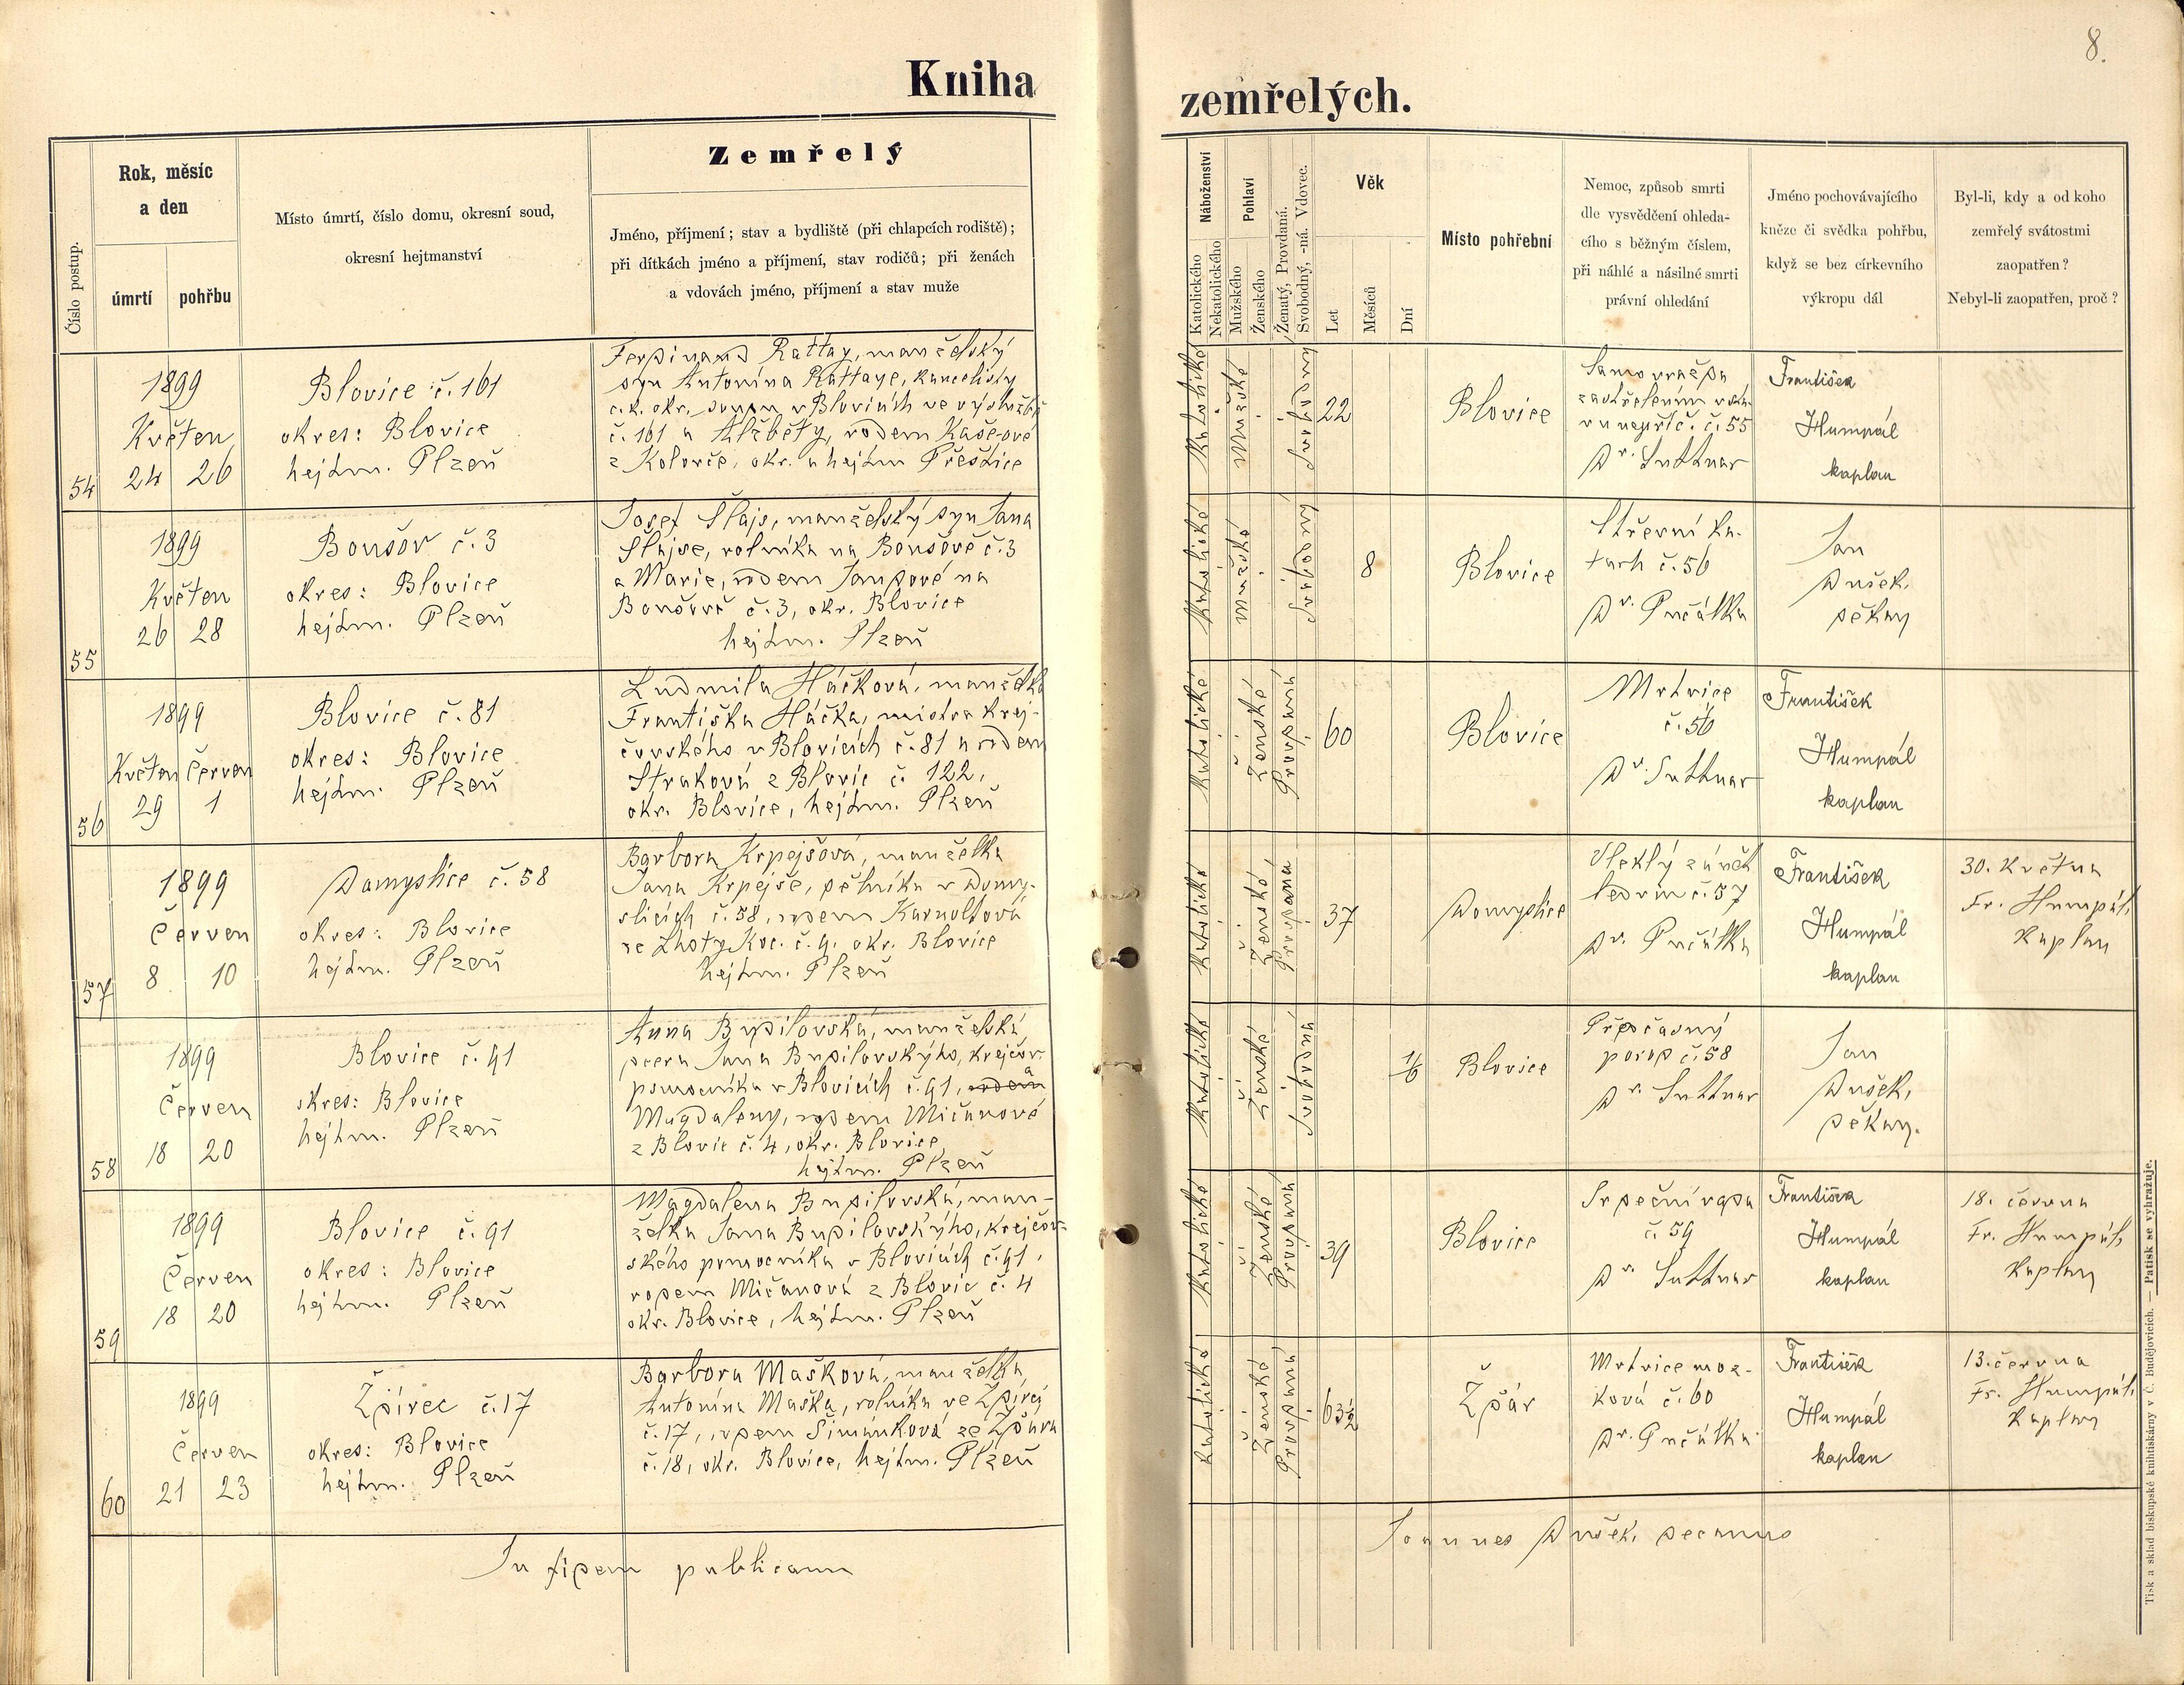 8.
Kniha
zemřelých.
Číslo postup.
Rok, měsíc
a den
úmrtí
pohřbu
Místo úmrtí, číslo domu, okresní soud,
okresní hejtmanství
Zemřelý
Jméno, příjmení; stav a bydliště (při chlapcích rodiště);
při dítkách jméno a příjmení, stav rodičů; při ženách
a vdovách jméno, příjmení a stav muže
Náboženství
Katolického
Nekatolického
Pohlaví
Mužského
Ženského
Ženatý, Provdaná.
Svobodný, -ná. Vdovec.
Věk
Let
Měsíců
Dní
Místo pohřební
Nemoc, způsob smrti
dle vysvědčení ohleda-
cího s běžným číslem,
při náhlé a násilné smrti
právní ohledání
Jméno pochovávajícího
kněze či svědka pohřbu,
když se bez církevního
výkropu dál
Byl-li, kdy a od koho
zemřelý svátostmi
zaopatřen?
Nebyl-li zaopatřen, proč?
54
1899
Květen
24 26
Blovice č. 161
okres: Blovice
hejtm. Plzeň
Ferdinand Rattay, manželský
syn Antonína Rattaye, kancelisty
c. k. okr. soudu v Blovicích ve výslužbě
č. 161 a Alžběty, rodem Kašeové
z Kolovče, okr. a hejtm Přeštice
Katolické
Mužské
Svobodný
22
Blovice
Samovražda
zastřelením
č. 55
Dr. Suttnar
František
Humpál
kaplan
55
1899
Květen
26 28
Bonšov č. 3
okres: Blovice
hejtm. Plzeň
Josef Šlajs, manželský syn Jana
Šlajse, rolníka na Bonšově č. 3
a Marie, rodem Jandové na
Bonšově č. 3, okr. Blovice
hejtm. Plzeň
Katolické
Mužské
Svobodný
8
Blovice
Střevní ka-
tarh č. 56
Dr. Pučálka
Jan
Dušek,
děkan
56
1899
Květen Červen
29 1
Blovice č. 81
okres: Blovice
hejtm. Plzeň
Ludmila Háčková, manželka
Františka Háčka, mistra krej-
čovského v Blovicích č. 81 a rodem
Straková z Blovic č. 122,
okr. Blovice, hejtm. Plzeň
Katolické
Ženské
Provdaná
60
Blovice
Mrtvice
č. 56
Dr. Suttnar
František
Humpál
kaplan
57
1899
Červen
8 10
Domyslice č. 58
okres: Blovice
hejtm. Plzeň
Barbora Krpejšová, manželka
Jana Krpejše, dělníka v Domy-
slicích č. 58, rodem Karnoltová
ze Lhoty Koc. č. 9, okr. Blovice
hejtm. Plzeň
Katolické
Ženské
Provdaná
37
Domyslice
Vleklý zánět
ledvin č. 57
Dr. Pučálka
František
Humpál
kaplan
30. května
Fr. Humpál,
kaplan
58
1899
Červen
18 20
Blovice č. 91
okres: Blovice
hejtm. Plzeň
Anna Budilovská, manželská
dcera Jana Budilovskýho, krejčov.
pomocníka v Blovicích č. 91, rodem a
Magdaleny, rodem Mičanové
z Blovic č. 4, okr. Blovice,
hejtm. Plzeň
Katolické
Ženské
Svobodná
1/6
Blovice
Předčasný
porod č. 58
Dr. Suttnar
Jan
Dušek,
děkan.
59
1899
Červen
18 20
Blovice č. 91
okres: Blovice
hejtm. Plzeň
Magdalena Budilovská, man-
želka Jana Budilovskýho, krejčov-
ského pomocníka v Blovicích č. 91,
rodem Mičanová z Blovic č. 4
okr. Blovice, hejtm. Plzeň
Katolické
Ženské
Provdaná
39
Blovice
Srdeční vada
č. 59
Dr. Suttnar
František
Humpál
kaplan
18. června
Fr. Humpál,
kaplan
60
1899
Červen
21 23
Ždírec č. 17
okres: Blovice
hejtm. Plzeň
Barbora Mašková, manželka
Antonína Maška, rolníka ve Ždírci
č. 17, rodem Šimánková ze Ždára
č. 18, okr. Blovice, hejtm. Plzeň
Katolické
Ženské
Provdaná
63½
Ždár
Mrtvice moz-
ková č. 60
Dr. Pučálka
František
Humpál
kaplan
13. června
Fr. Humpál,
kaplan
In fidem publicam
Joannes Dušek, decanus
Tisk a sklad biskupské knihtiskárny v Č. Budějovicích. — Patisk se vyhražuje.